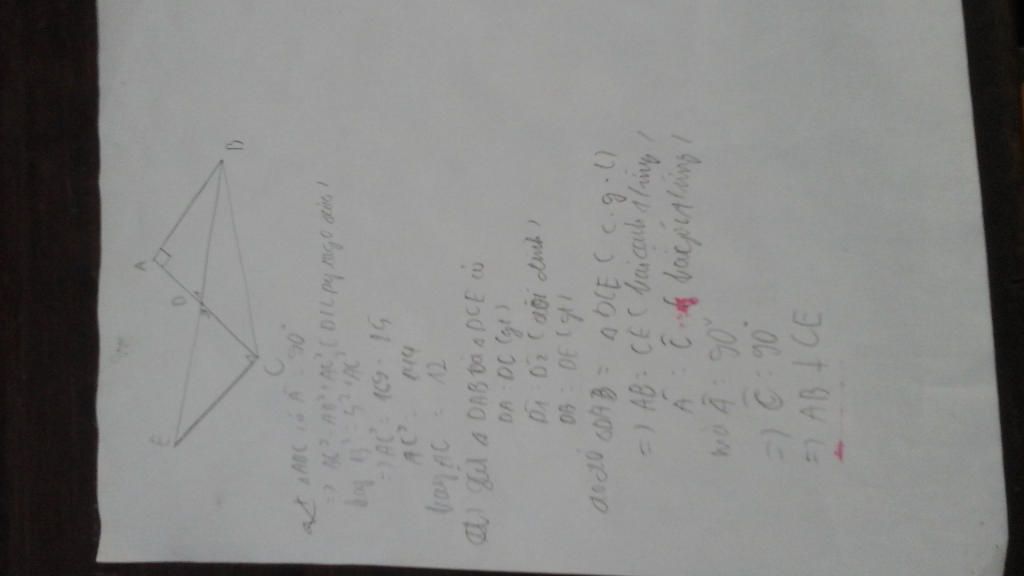 A
B
D
E
C
a) Δ ABC có Â = 90°
=> BC² = AB² + AC² (ĐL py ta go)
hay 13² = 5² + AC²
=> AC² = 169 - 25
AC² = 144
hay AC = 12
Xét Δ DAB và Δ DCE có
DA = DC (gt)
D̂1 = D̂2 (đối đỉnh)
DB = DE (gt)
do đó ΔDAB = Δ DCE (c.g.c)
=> AB = CE (hai cạnh t/ứng)
Â = Ĉ hai góc t/ứng)
mà Â = 90°
=> Ĉ = 90°
=> AB ⊥ CE